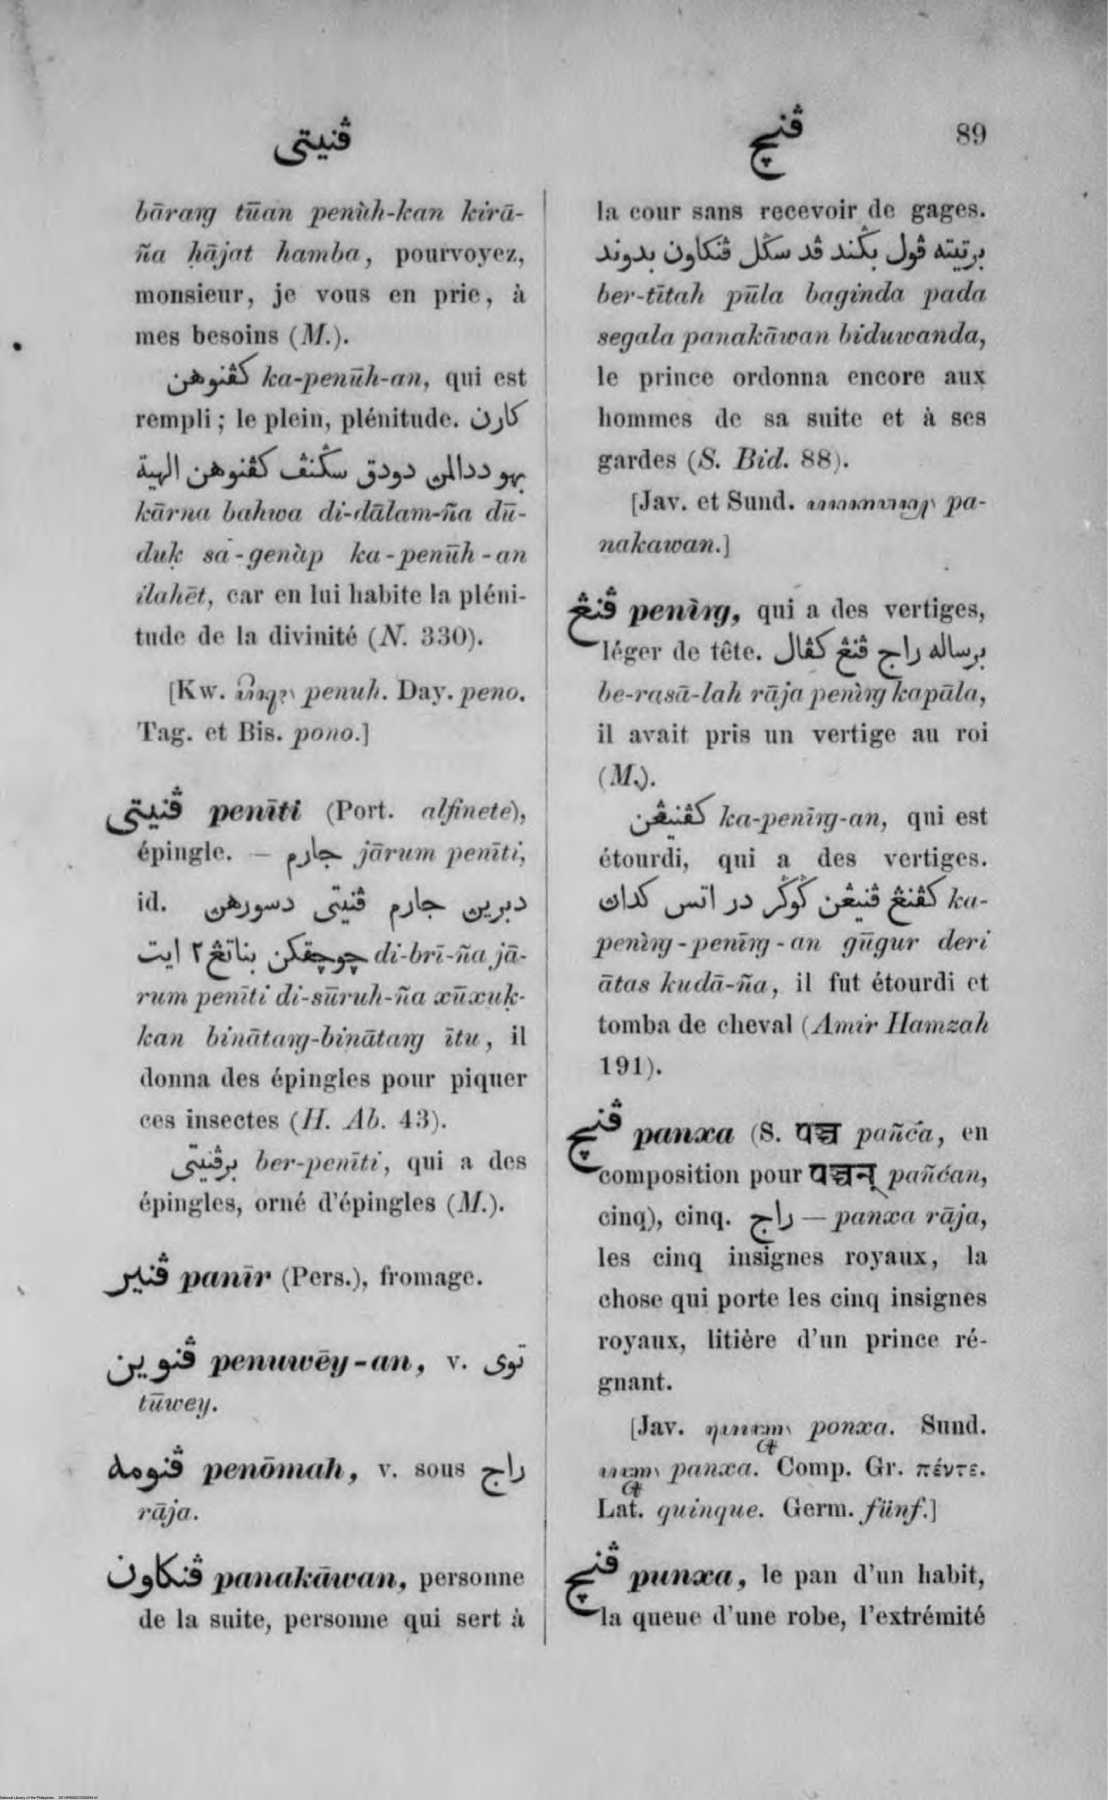 ڤنيتي
ڤنچ
89
bārang tūan penùh-kan kirā-
ña ḥājat hamba, pourvoyez,
monsieur, je vous en prie, à
mes besoins (M.).
كڤنوهن ka-penūh-an, qui est
rempli; le plein, plénitude. كارن
بهو ددالمن دودق سڬنڤ كڤنوهن الهية
kārna bahwa di-dālam-ña dū-
duḳ sa-genàp ka-penūh-an
ilahēt, car en lui habite la pléni-
tude de la divinité (N. 330).
[Kw. penuh. Day. peno.
Tag. et Bis. pono.]
ڤنيتي penīti (Port. alfinete),
épingle. — جارم jārum penīti,
id. دبرين جارم ڤنيتي دسورهن
چوچقكن بناتڠ٢ ايت di-brī-ña jā-
rum penīti di-sūruh-ña xūxuḳ-
kan binātang-binātang ītu, il
donna des épingles pour piquer
ces insectes (H. Ab. 43).
برڤنيتي ber-penīti, qui a des
épingles, orné d'épingles (M.).
ڤنير panīr (Pers.), fromage.
ڤنوين penuwēy-an, v. توي
tūwey.
ڤنومه penōmah, v. sous راج
rāja.
ڤنكاون panakāwan, personne
de la suite, personne qui sert à
la cour sans recevoir de gages.
برتيته ڤول بڬند ڤد سڬل ڤنكاون بدوند
ber-tītah pūla baginda pada
segala panakāwan biduwanda,
le prince ordonna encore aux
hommes de sa suite et à ses
gardes (S. Bid. 88).
[Jav. et Sund. pa-
nakawan.]
ڤنڠ penìng, qui a des vertiges,
léger de tête. برساله راج ڤنڠ كڤال
be-rasā-lah rāja penìng kapāla,
il avait pris un vertige au roi
(M.).
كڤنيڠن ka-penīng-an, qui est
étourdi, qui a des vertiges.
كڤنڠ ڤنيڠن ڬوڬر در اتس كدان ka-
penìng-penīng-an gūgur deri
ātas kudā-ña, il fut étourdi et
tomba de cheval (Amir Hamzah
191).
ڤنچ panxa (S. पञ्च pañća, en
composition pour पञ्चन् pañćan,
cinq), cinq. راج — panxa rāja,
les cinq insignes royaux, la
chose qui porte les cinq insignes
royaux, litière d'un prince ré-
gnant.
[Jav. ponxa. Sund.
panxa. Comp. Gr. πέντε.
Lat. quinque. Germ. fünf.]
ڤنچ punxa, le pan d'un habit,
la queue d'une robe, l'extrémité